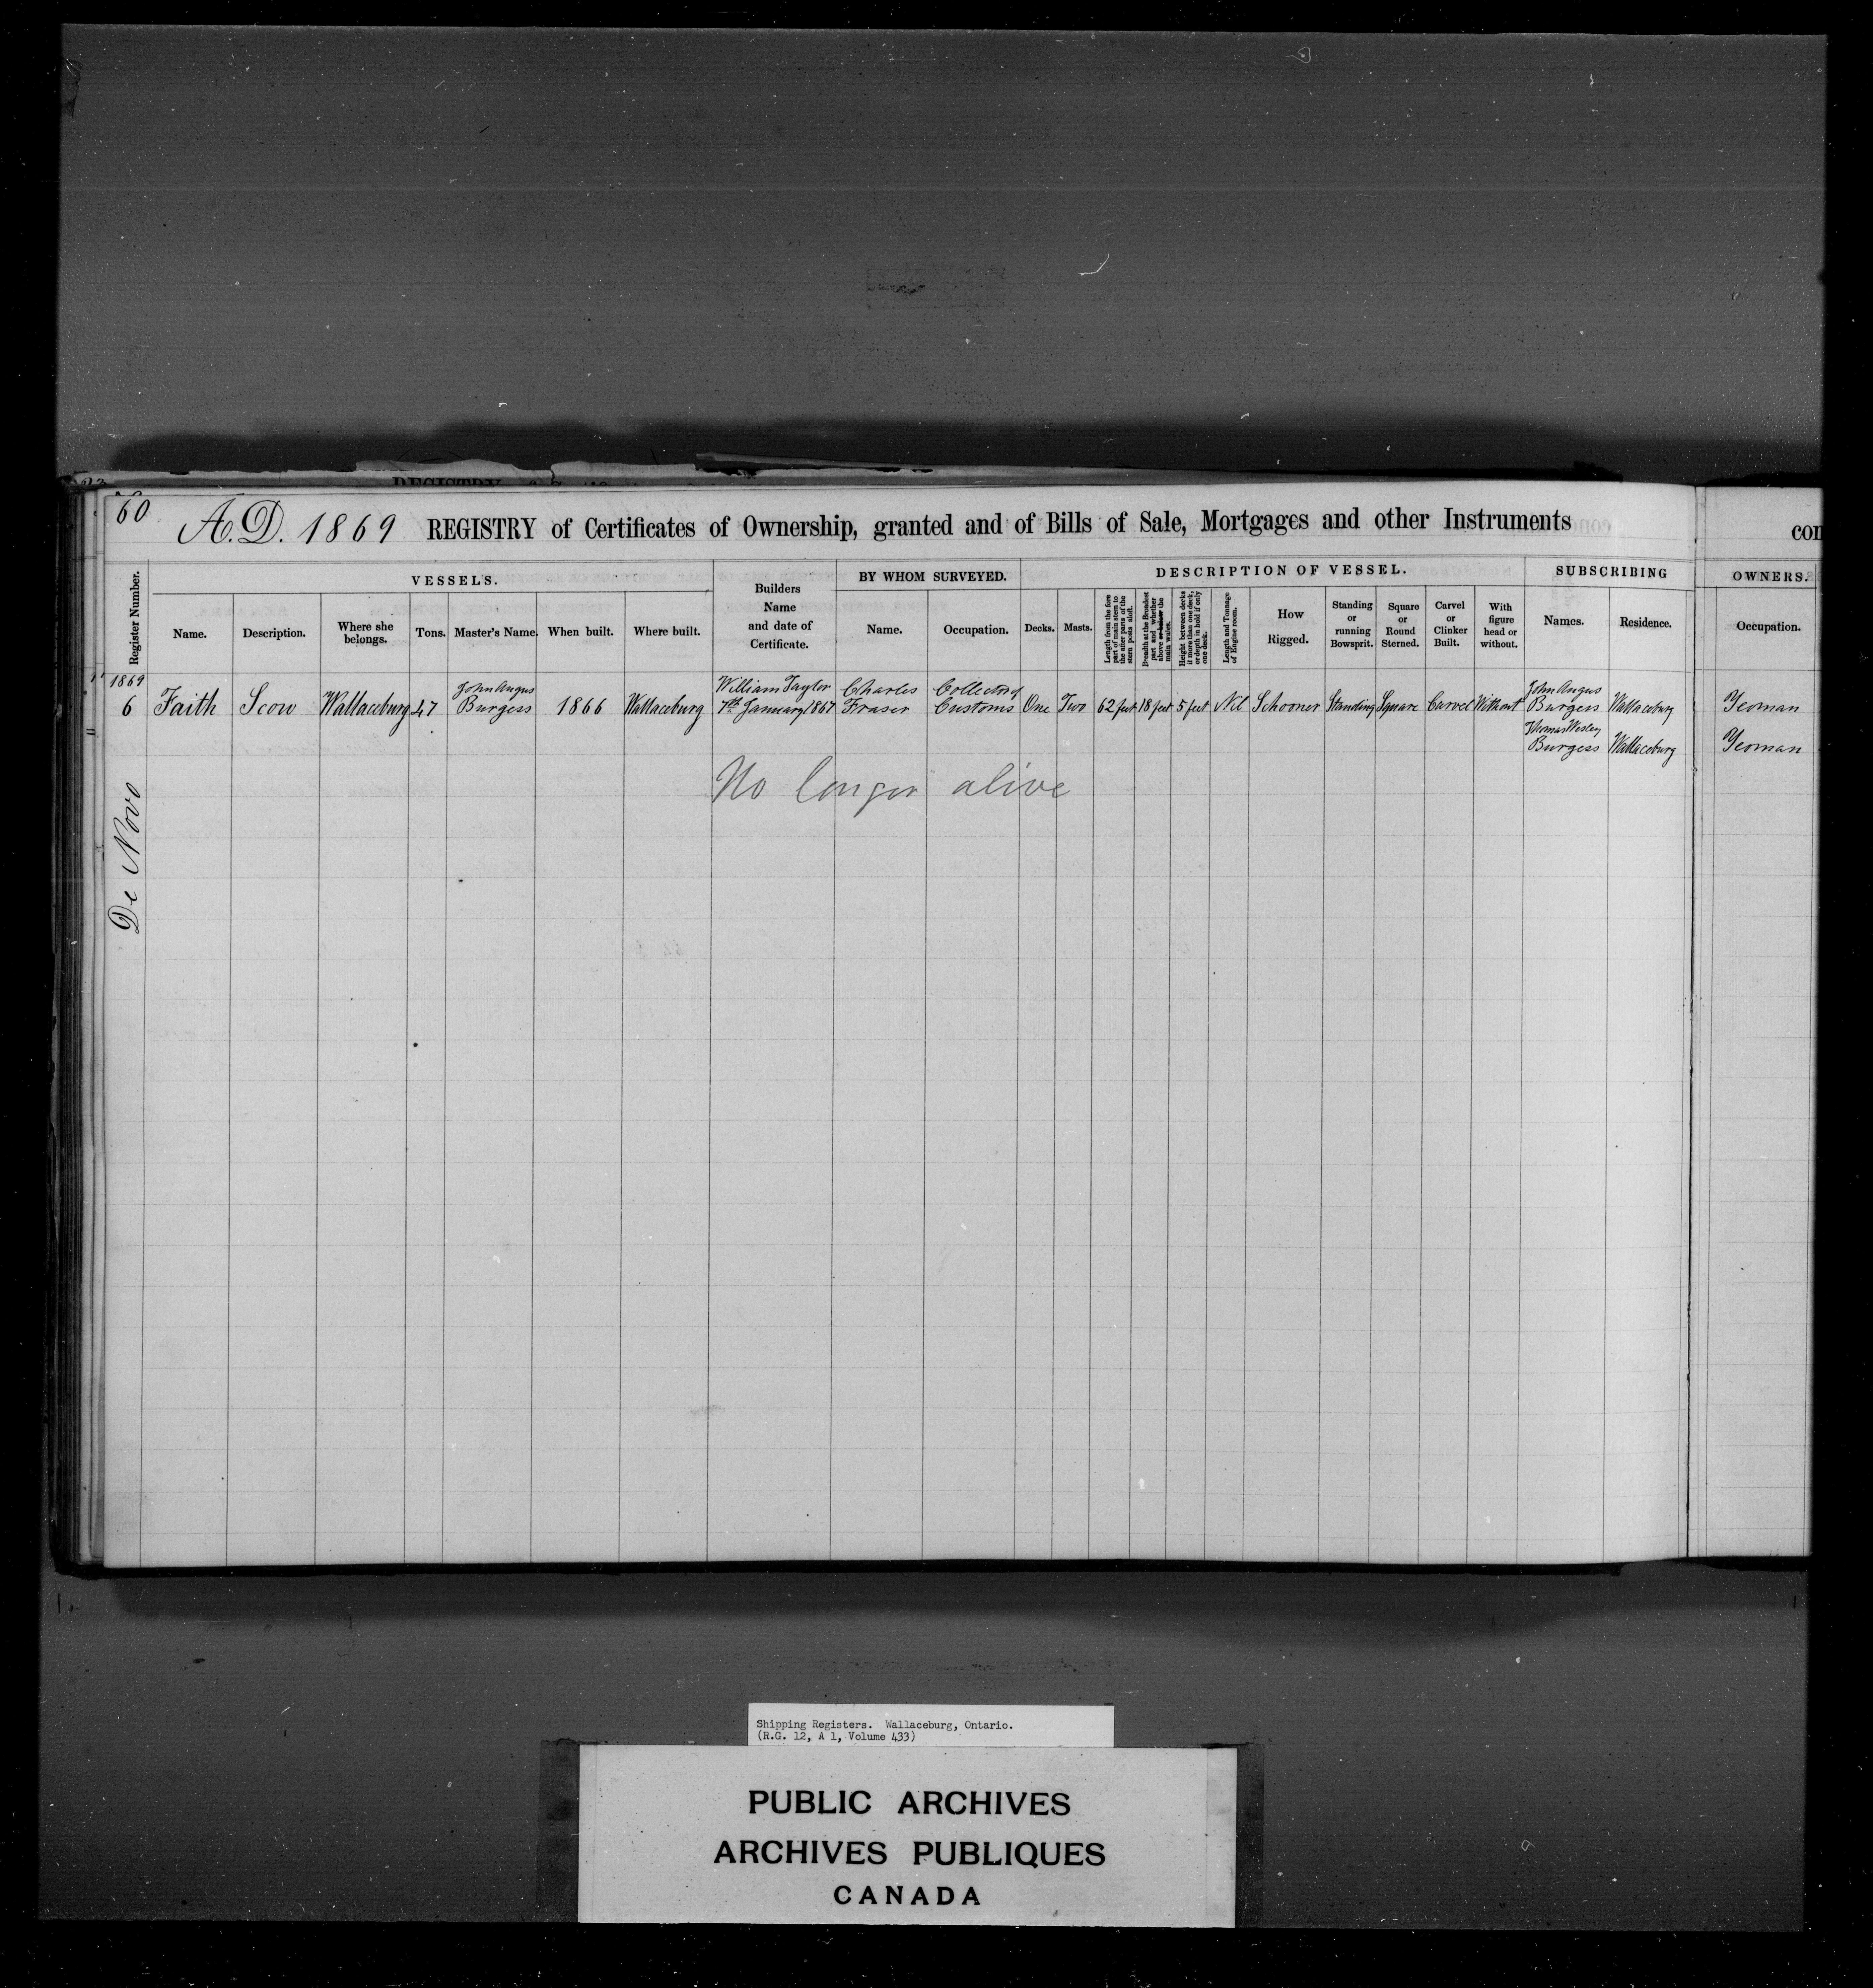 60
A.D. 1869 REGISTRY of Certificates of Ownership, granted and of Bills of Sale, Mortgages and other Instruments
con
Register Number.
VESSELS.
Name.
Description.
Where she belongs.
Tons.
Master's Name.
When built.
Where built.
Builders Name and date of Certificate.
BY WHOM SURVEYED.
Name.
Occupation.
DESCRIPTION OF VESSEL.
Decks.
Masts.
Length from the fore part of main stem to the after parts of the stern posts aloft.
Breadth at the Broadest part and whether above or below the main wales.
Height between decks if more than one deck, or depth in hold if only one deck.
Length and Tonnage of Engine room.
How Rigged.
Standing or running Bowsprit.
Square or Round Sterned.
Carvel or Clinker Built.
With figure head or without.
SUBSCRIBING
Names.
Residence.
OWNERS.
Occupation.
1869
6 Faith Scow Wallaceburg 47 John Angus Burgess 1866 Wallaceburg William Taylor 7th January 1867 Charles Fraser Collector of Customs One Two 62 feet 18 feet 5 feet Nil Schooner Standing Square Carvel Without John Angus Burgess Wallaceburg Yeoman
Thomas Wesley Burgess Wallaceburg Yeoman
No longer alive
De Novo
Shipping Registers. Wallaceburg, Ontario.
(R.G. 12, A 1, Volume 433)
PUBLIC ARCHIVES
ARCHIVES PUBLIQUES
CANADA